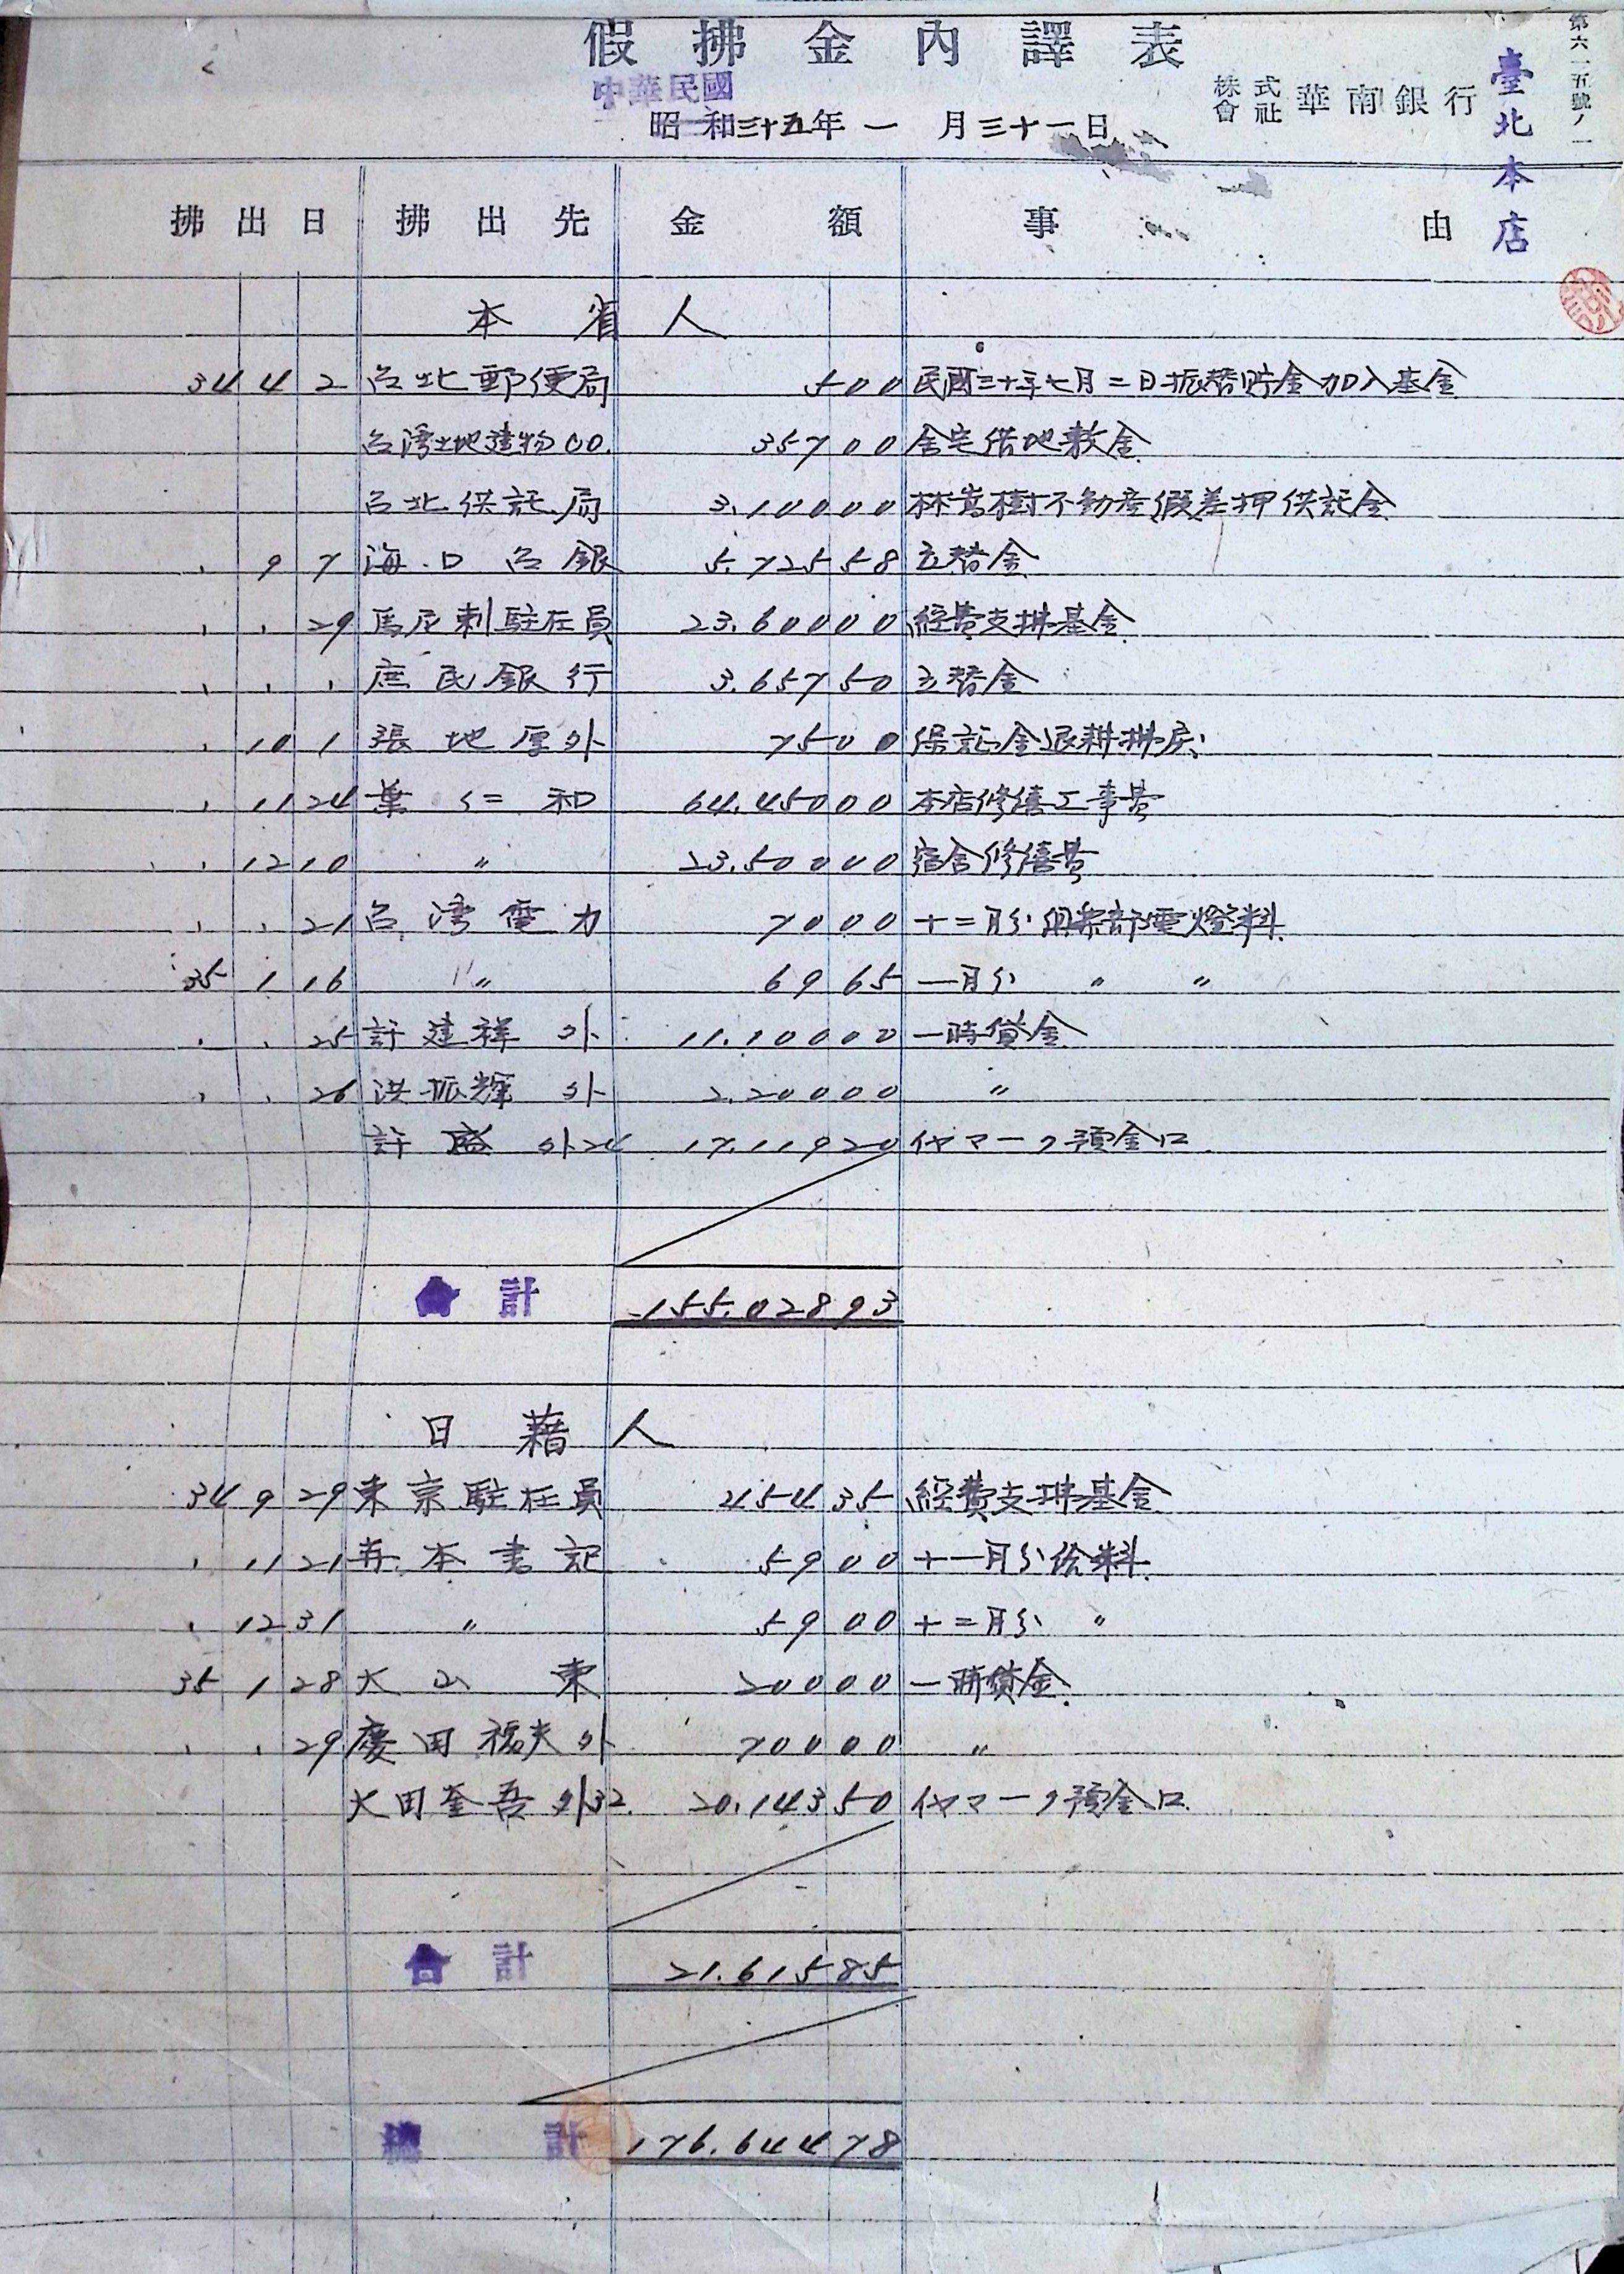 第六一五號ノ一
假拂金內譯表
中華民國
昭和三十五年一月三十一日
株式會社 華南銀行 臺北本店
拂出日 拂出先 金額 事由
本省人
34 4 2 台北郵便局 5 00 民國三十年七月二日振替貯金加入基金
台湾土地建物CO. 357 00 舍宅借地敷金
台北供託局 3.100 00 林嵩樹不動産假差押供託金
〃 9 7 海口台銀 5.725 58 立替金
〃 〃 29 馬尼剌駐在員 23.600 00 経費支拂基金
〃 〃 〃 庶民銀行 3.657 50 立替金
〃 10 1 張地厚外 75 00 保証金退耕拂戻
〃 11 24 葉仁和 64.450 00 本店修繕工事費
〃 12 10 〃 23.500 00 宿舍修繕費
〃 〃 21 台湾電力 70 00 十二月分俱楽部電燈料
35 1 16 〃 69 65 一月分 〃 〃
〃 〃 25 許建祥外 11.100 00 一時貸金
〃 〃 26 洪振輝外 2.200 00 〃
許盛外24 17.119 20 イヤマーク預金口
合計 155.028 93
日藉人
34 9 29 東京駐在員 454 35 経費支拂基金
〃 11 21 本書記 59 00 十一月分給料
〃 12 31 〃 59 00 十二月分 〃
35 1 28 大山東 200 00 一時貸金
〃 〃 29 慶田福夫外 700 00 〃
大田奎吾外32 20.143 50 イヤマーク預金口
合計 21.615 85
總計 176.644 78